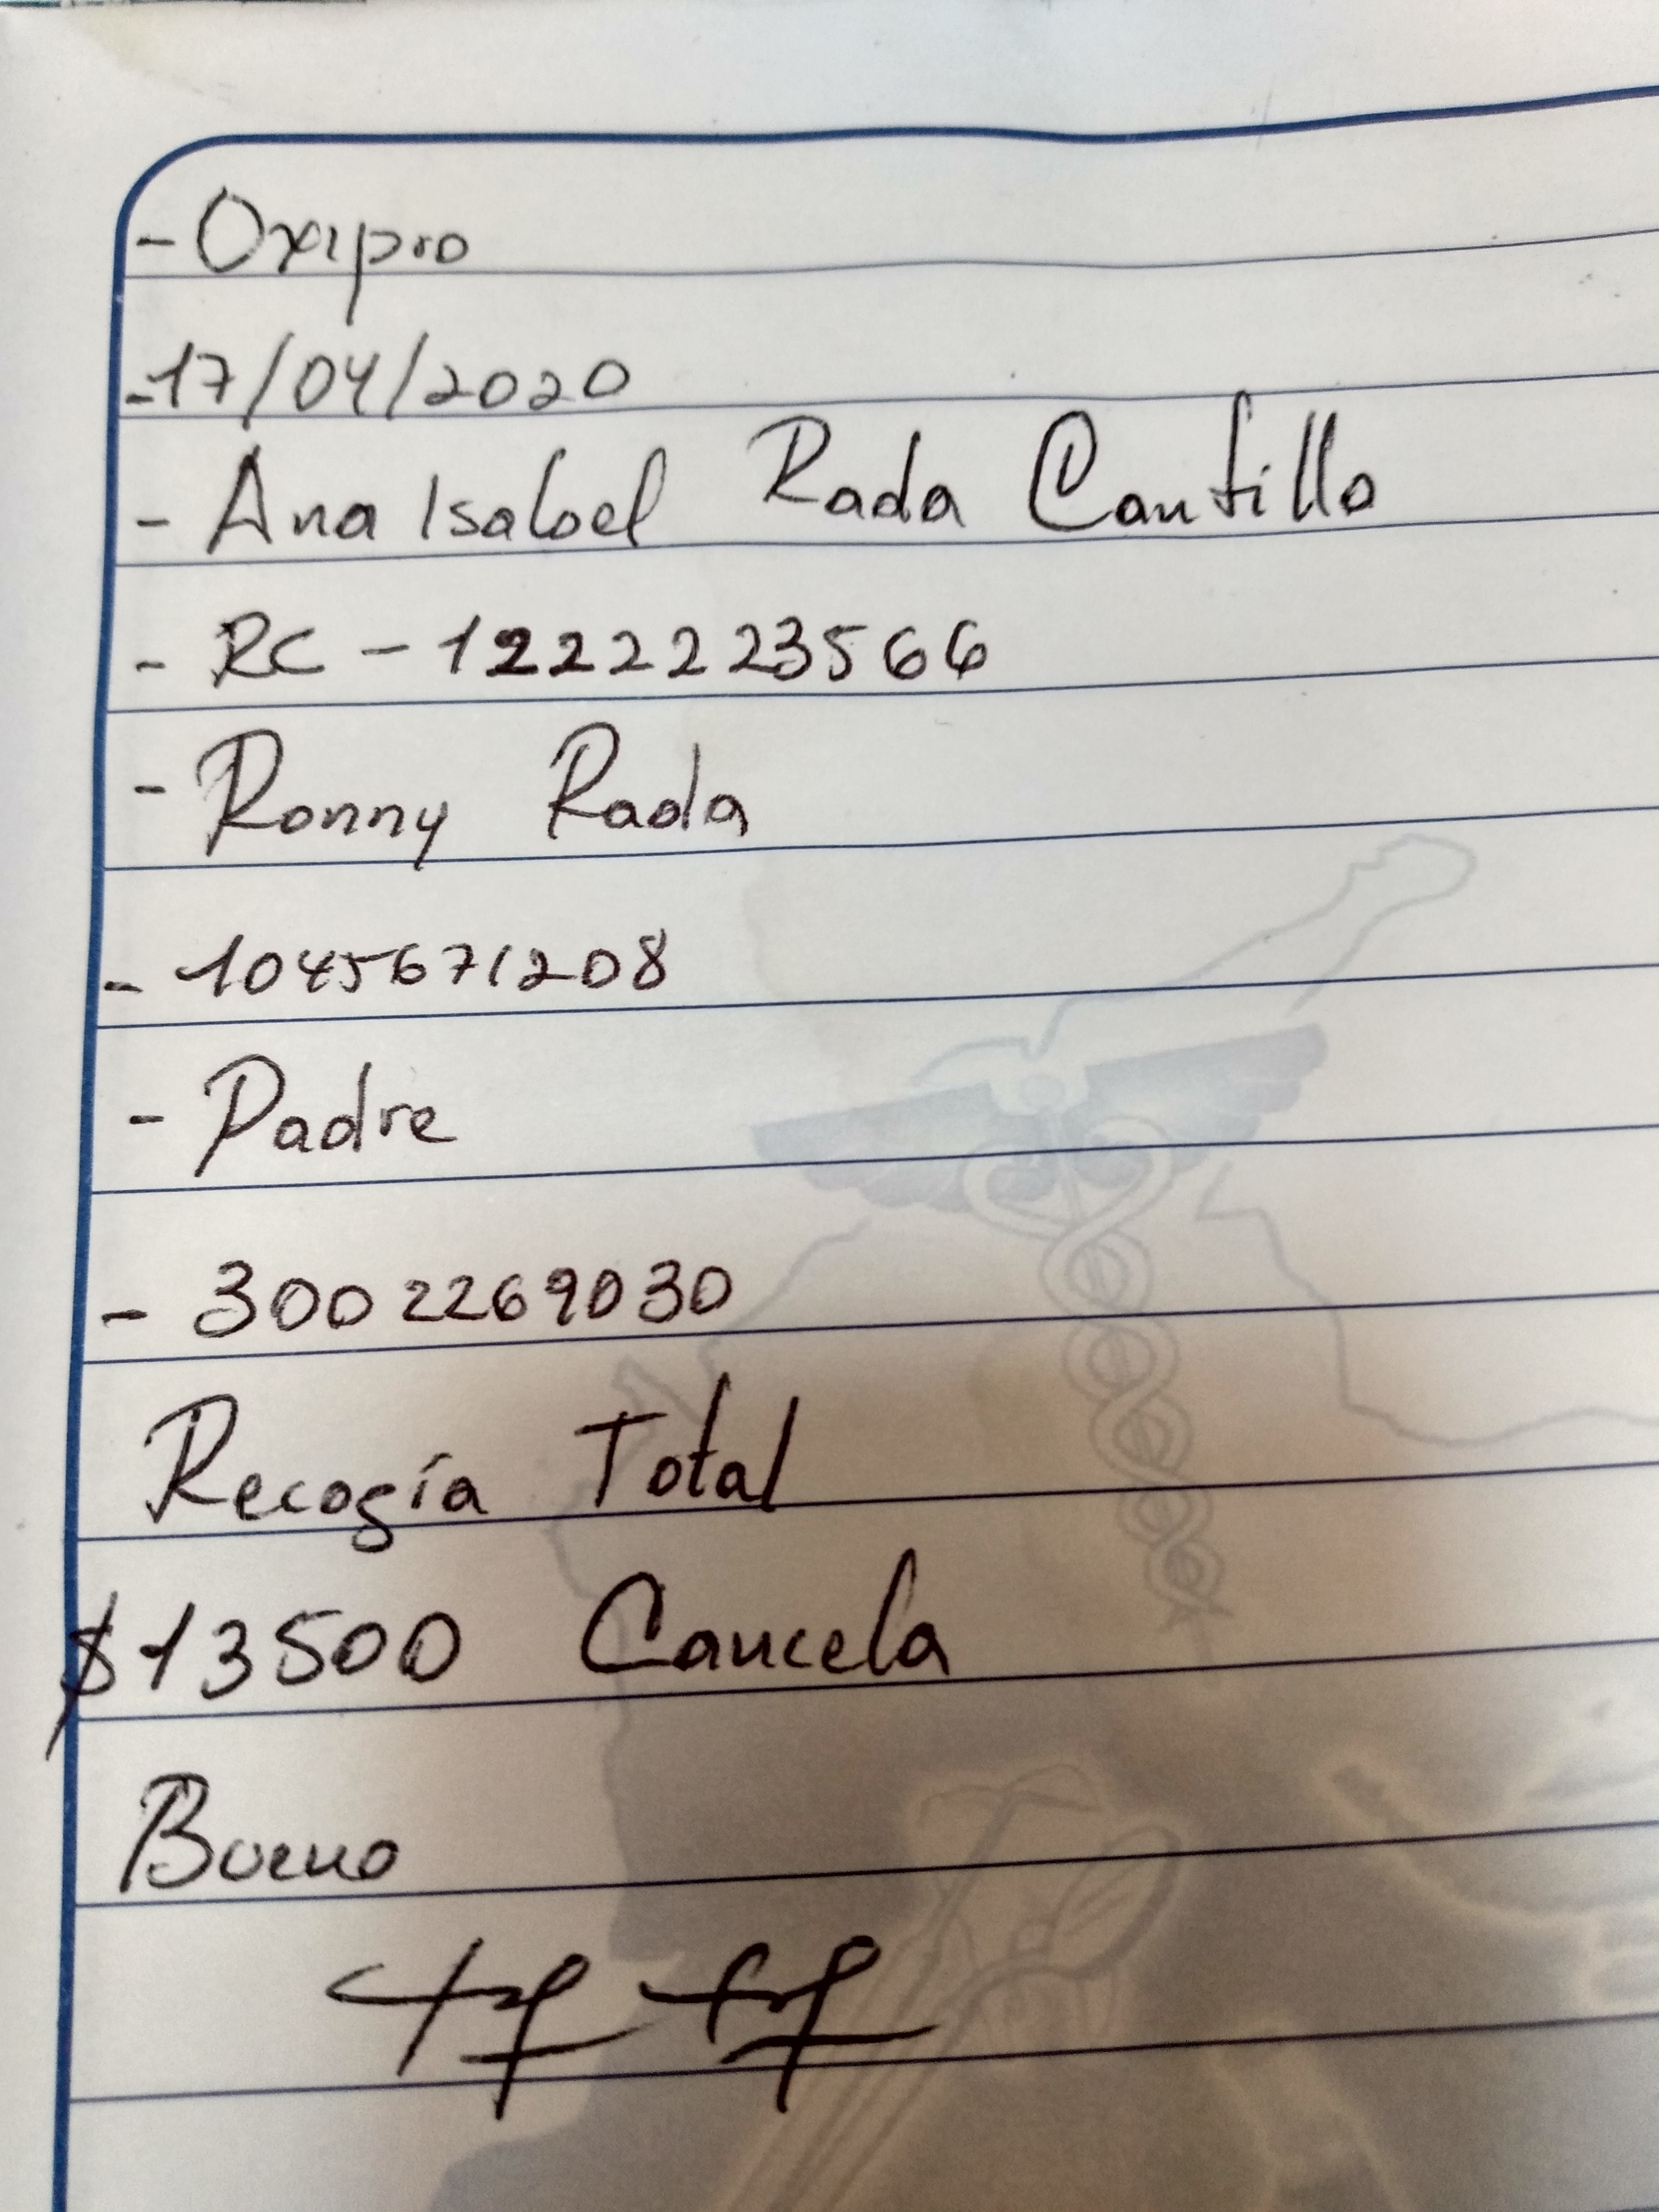 - Oxipro
- 17/04/2020
- Ana Isabel Rada Cantillo
- RC - 1222223566
- Ronny Rada
- 1045671208
- Padre
- 3002269030
Recogía Total
$13500 Cancela
Bueno